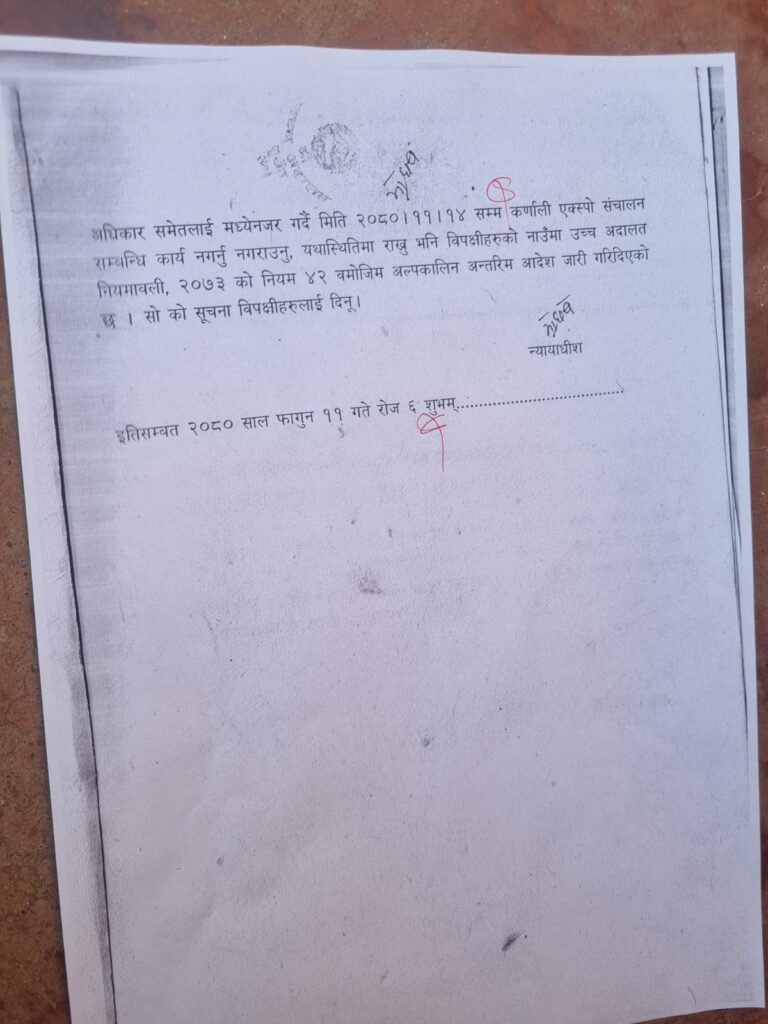 अधिकार समेतलाई मध्येनजर गर्दै मिति २०८०।११।१४ सम्म कर्णाली एक्स्पो संचालन
सम्बन्धि कार्य नगर्नु नगराउनु, यथास्थितिमा राख्नु भनि विपक्षीहरुको नाउँमा उच्च अदालत
नियमावली, २०७३ को नियम ४२ वमोजिम अल्पकालिन अन्तरिम आदेश जारी गरिदिएको
छ । सो को सूचना विपक्षीहरुलाई दिनू।
न्यायाधीश
इतिसम्वत २०८० साल फागुन ११ गते रोज ६ शुभम्......................................